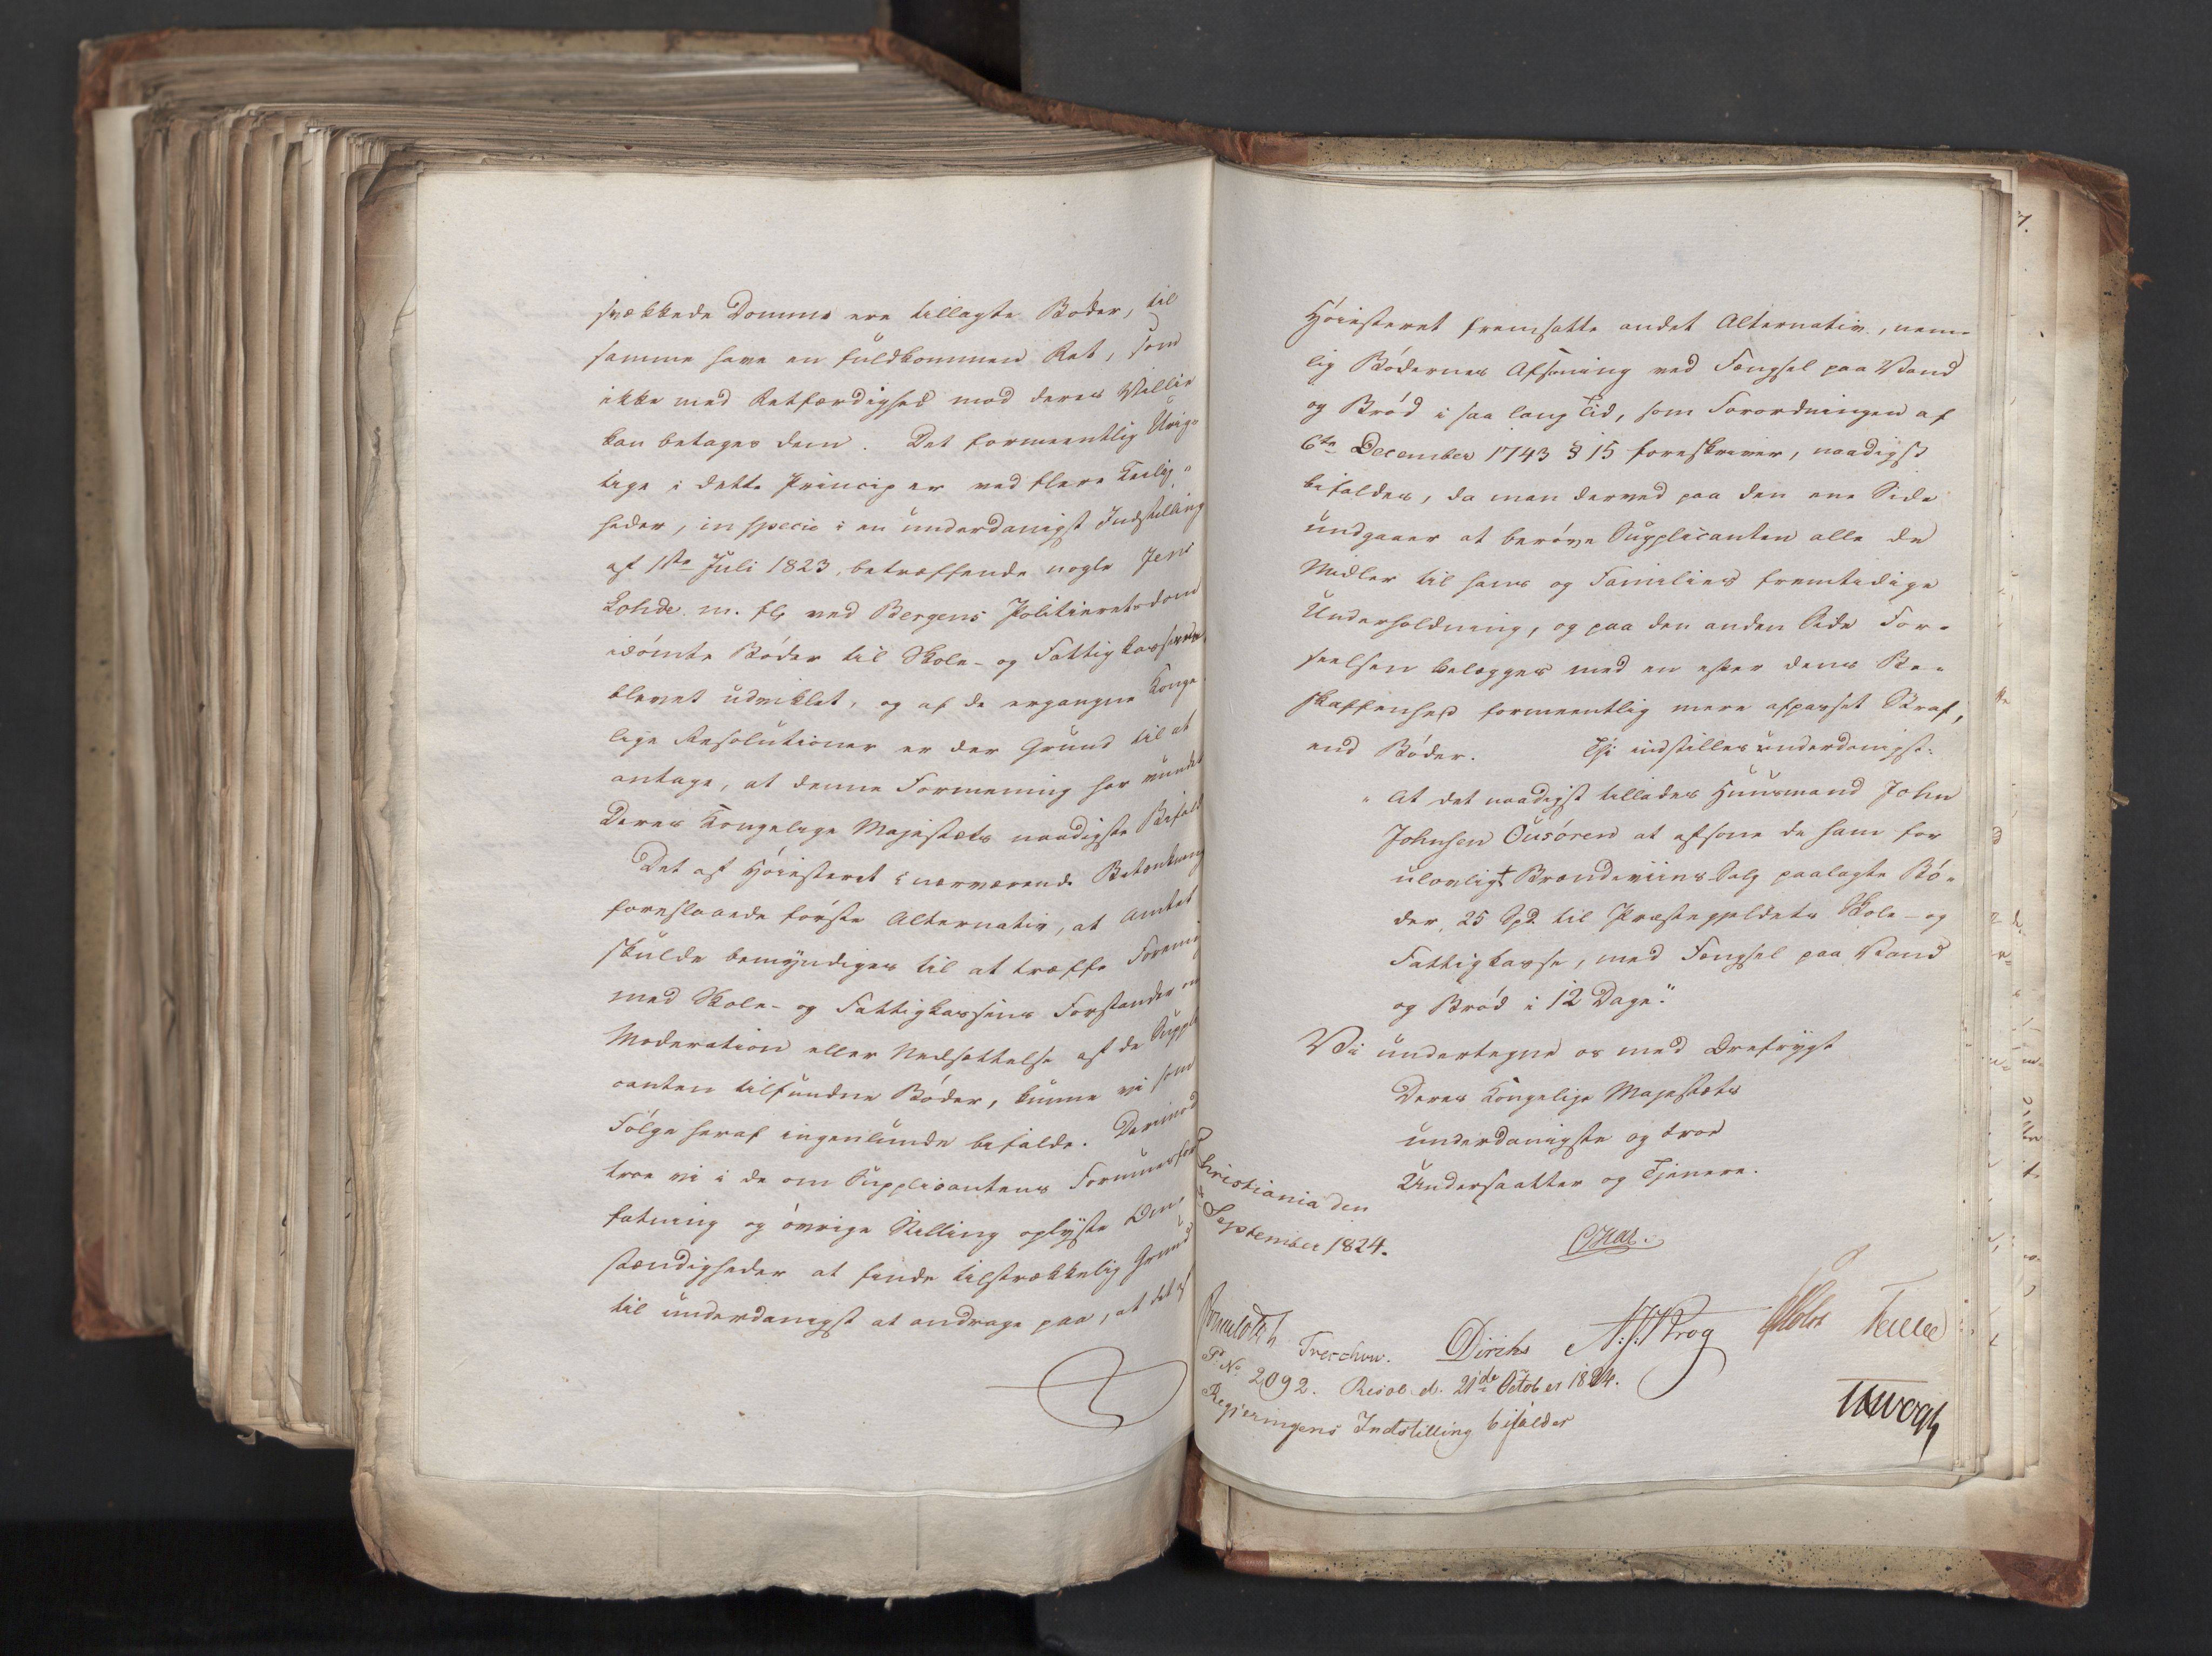 svækkede Domme ere tillagte Bøder, til
samme have en fuldkommen Ret, som
ikke med Retfærdighed mod deres Villie
kan betages dem. Det formeentlig Urig-
tige i dette Princip er ved flere Leilig-
heder, in specie i en underdanigst Indstilling
af 1ste Juli 1823, betræffende nogle Jens
Lohde m. fl. ved Bergens Politieretsdom
idømte Bøder til Skole- og Fattigkasserne
blevet udviklet, og af de ergangne Konge-
lige Resolutioner er der Grund til at
antage, at denne Formening har vundet
Deres Kongelige Majestæts naadigste Bifald
Det af Høiesteret i nærværende Betænkning
foreslaaede første Alternativ, at Amtet
skulde bemyndiges til at træffe Forening
med Skole- og Fattigkassens Forstander om
Moderation eller Nedsættelse af de Suppli-
canten tilfundne Bøder, kunne vi som
Følge heraf ingenlunde bifalde. Derimod
troe vi i de om Supplicantens Formuesfor-
fatning og øvrige Stilling oplyste Om-
stændigheder at finde tilstrækkelig Grund
til underdanigst at andrage paa, at det af
Høiesteret fremsatte andet Alternativ, nem-
lig Bødernes Afsoning ved Fængsel paa Vand
og Brød i saa lang Tid, som Forordningen af
6te December 1743 § 15 foreskriver, naadigst
bifaldes, da man derved paa den ene Side
undgaaer at berøve Supplicanten alle de
Midler til hans og Families fremtidige
Underholdning, og paa den anden Side For-
seelsen belægges med en efter dens Be-
skaffenhed formeentlig mere afpasset Straf,
end Bøder. Thi indstilles underdanigst:
"At det naadigst tillades Huusmand John
Johnsen Ousøren at afsone de ham for
ulovligt Brændeviins-Salg paalagte Bø-
der, 25 Spd. til Præstegjeldets Skole- og
Fattigkasse, med Fængsel paa Vand
og Brød i 12 Dage."
Vi undertegne os med Ærefrygt
Deres Kongelige Majestæts
underdanigste og troe
Undersaatter og Tjenere.
Christiania den
September 1824.
Treschow. Diriks N: J: Krog JHolst
P. No. 2092. Resol. d. 21de October 1824.
Regjeringens Indstilling bifaldes